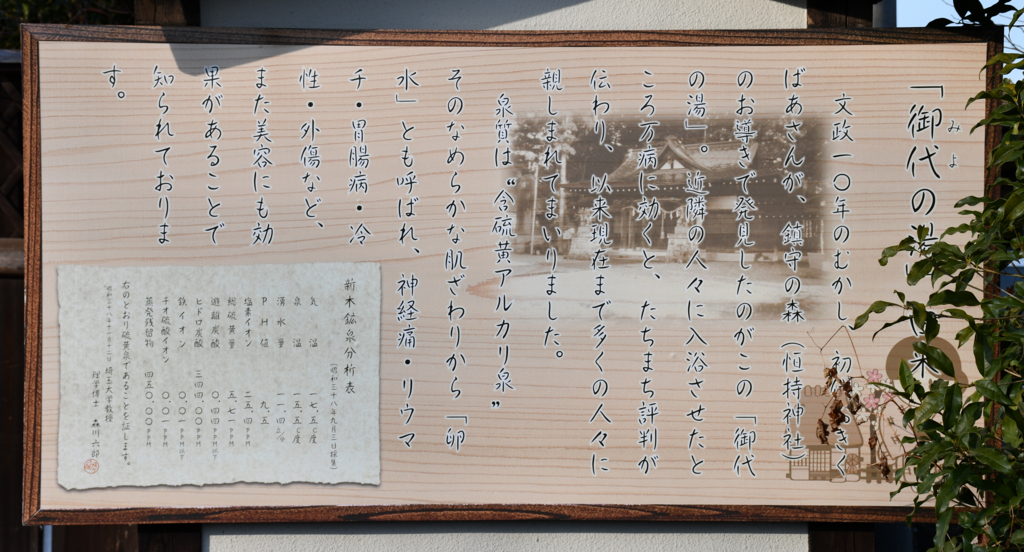 「御代の湯
みよ
文政一〇年のむかし、初 きく
ばあさんが、鎮守の森(恒持神社)
のお導きで発見したのがこの「御代
の湯」。近隣の人々に入浴させたと
ころ万病に効くと、たちまち評判が
伝わり、以来現在まで多くの人々に
親しまれてまいりました。
泉質は“含硫黄アルカリ泉”
そのなめらかな肌ざわりから「卵
水」とも呼ばれ、神経痛・リウマ
チ・胃腸病・冷
性・外傷など、
また美容にも効
果があることで
知られておりま
す。
新木鉱泉分析表
(昭和三十八年九月三日採集)
気温 一七、五℃度
泉温 一五、五℃度
湧水量 一一、四
PH値 九、五
塩素イオン 二五、四PPM
総硫黄量 五、七一PPM
遊離炭酸 〇、四四PPM以下
ヒドロ炭酸 三四四、〇〇PPM
鉄イオン 〇、〇〇PPM以下
チオ硫酸イオン 〇、〇一PPM
蒸発残留物 四五〇、〇〇PPM
右のとおり硫黄泉であることを証します。
埼玉大学教授
理学博士 森川六郎